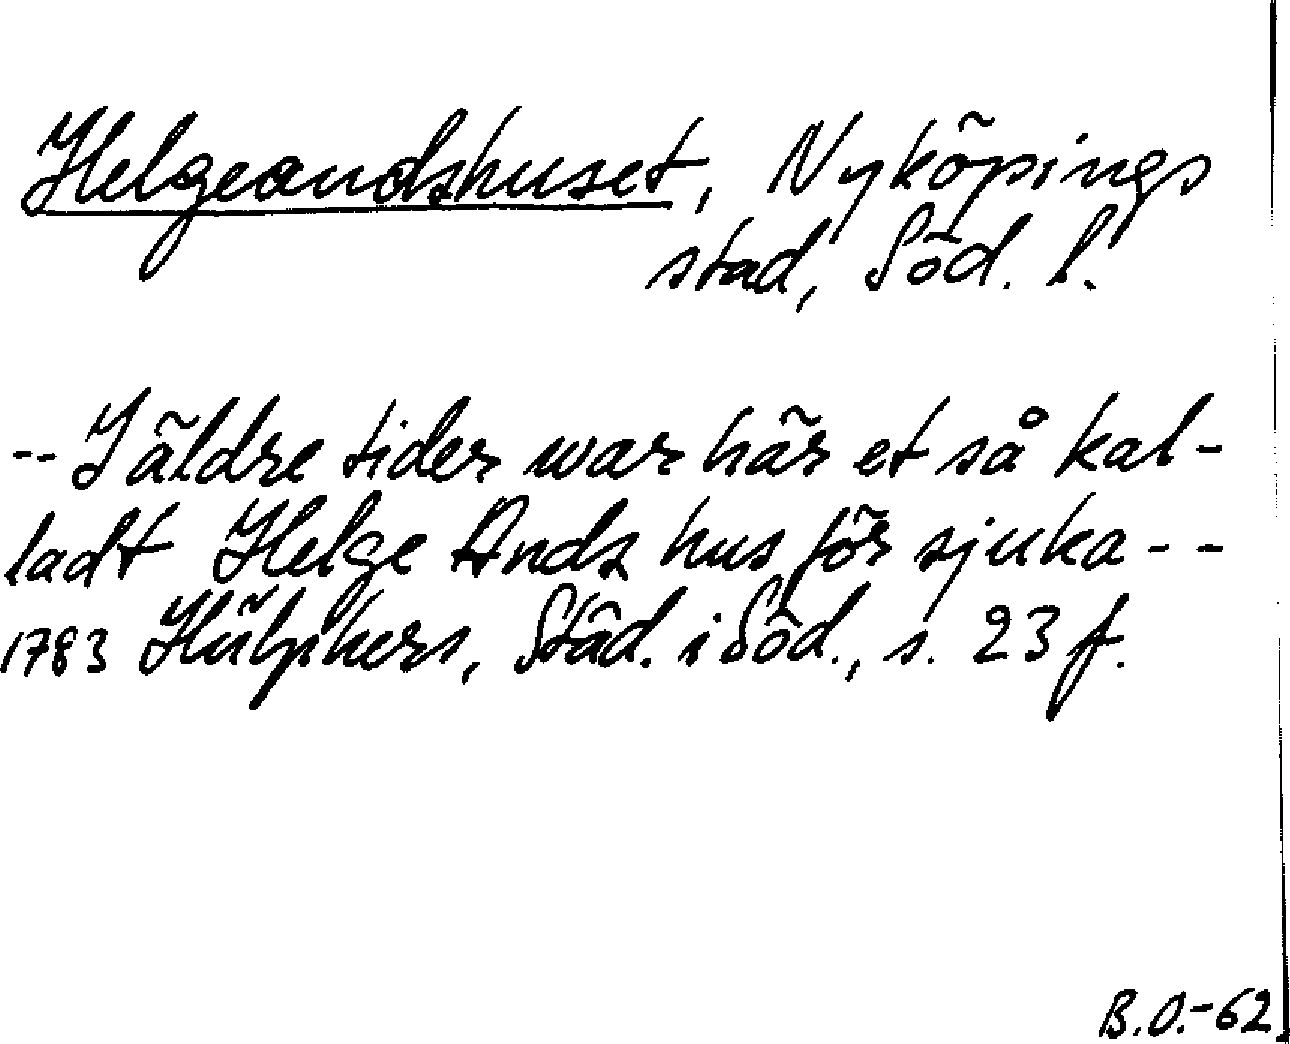 Helgeandshuset, Nyköpings
stad, Söd. l.
-- I äldre tider war här et så kal-
ladt Helge Ands hus för sjuka --
1783 Hülphers, Städ. i Söd., s. 23 f.
B.O.-62